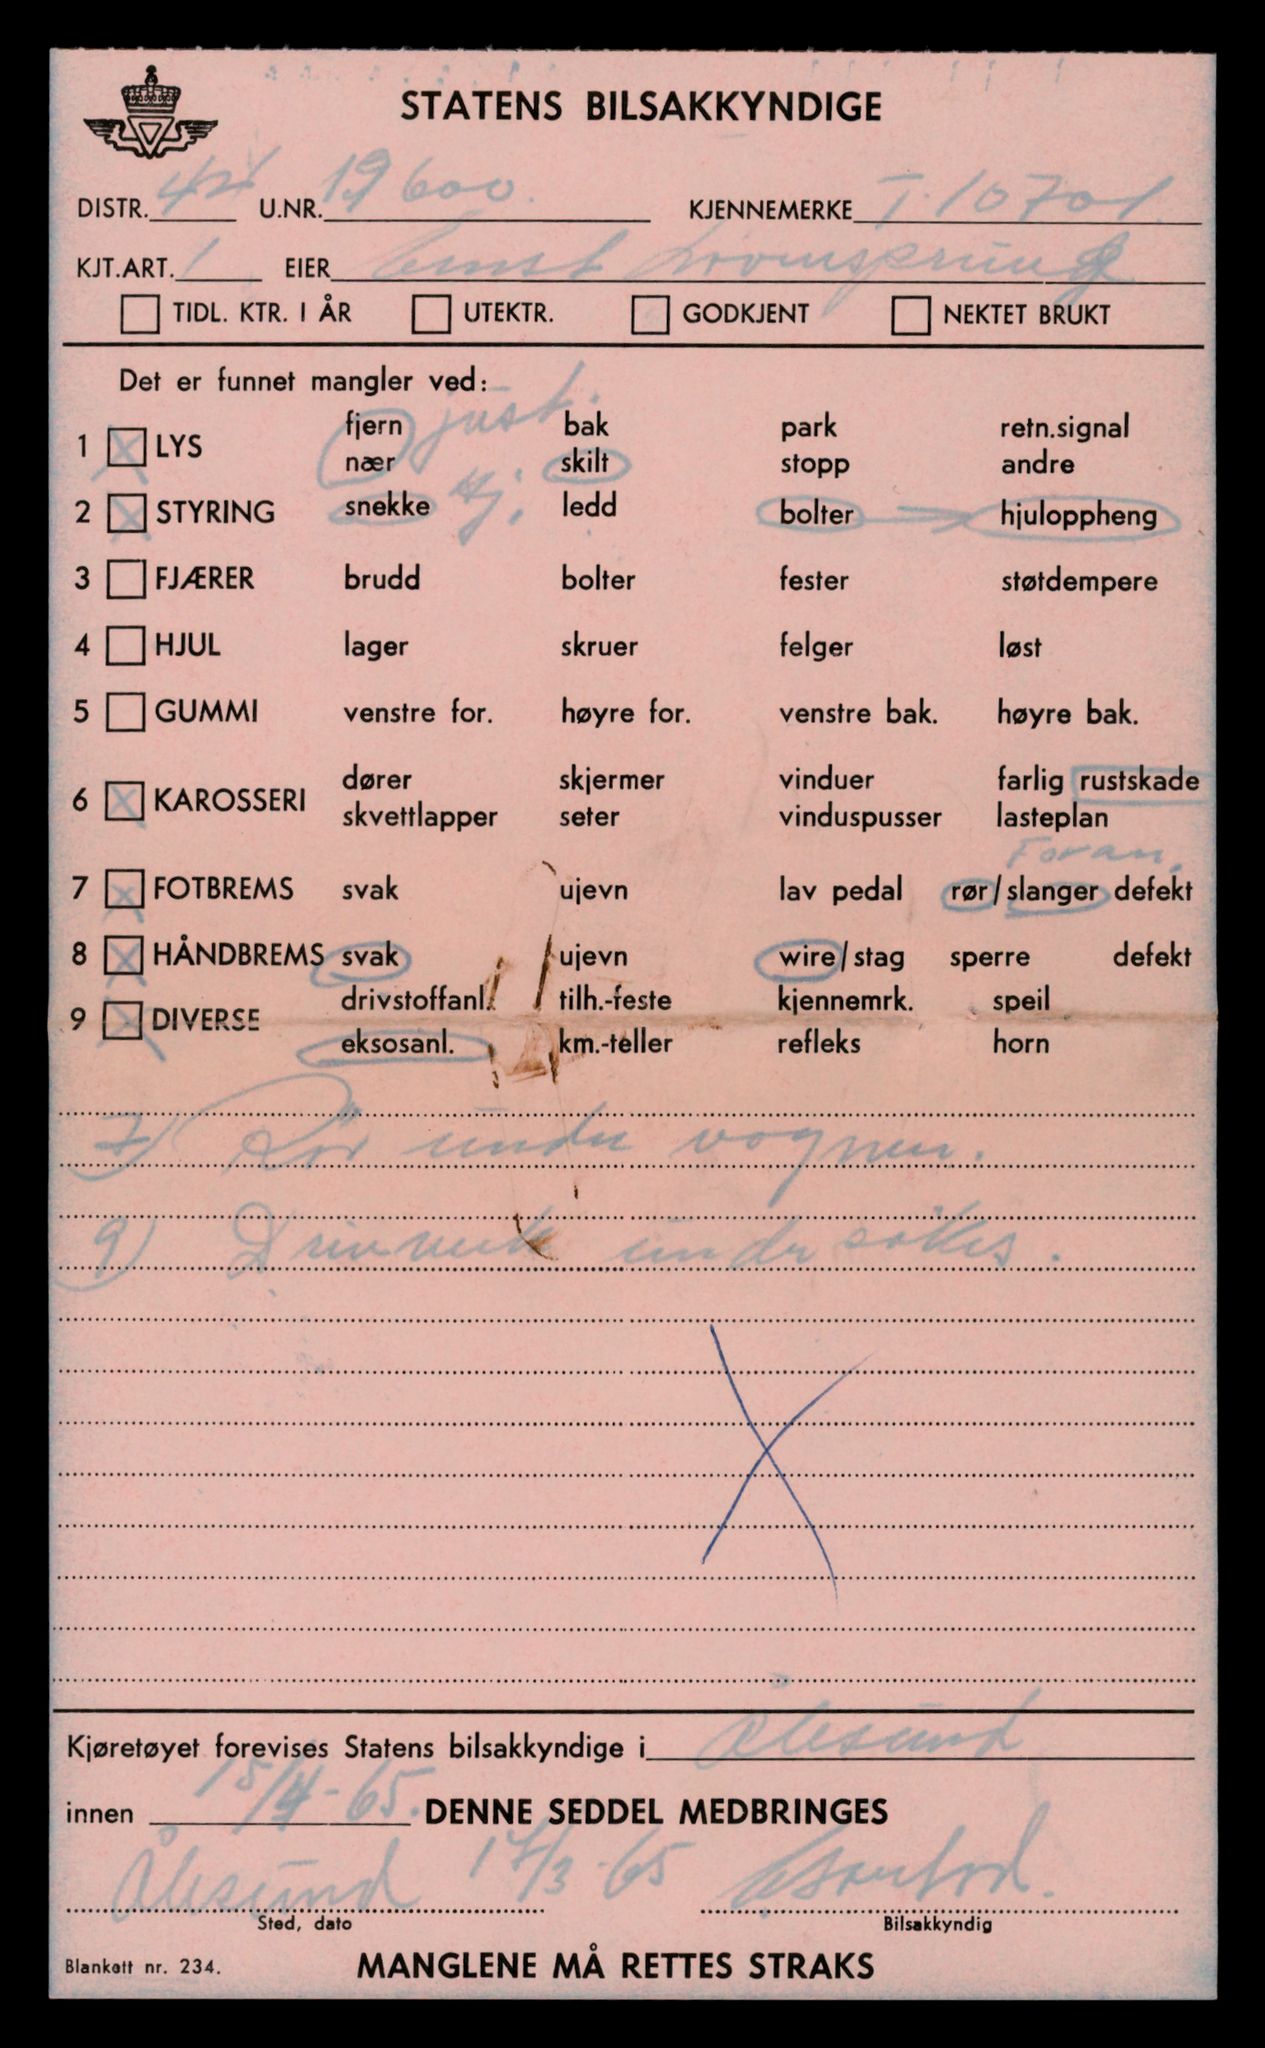 STATENS BILSAKKYNDIGE
DISTR. 42 U.NR. 19600. KJENNEMERKE T-10701.
KJT.ART. 1 EIER
TIDL. KTR. I ÅR UTEKTR. GODKJENT NEKTET BRUKT
Det er funnet mangler ved: just.
fjern bak park retn.signal
1 LYS
nær skilt stopp andre
2 STYRING snekke ledd bolter hjuloppheng
3 FJÆRER brudd bolter fester støtdempere
4 HJUL lager skruer felger løst
5 GUMMI venstre for. høyre for. venstre bak. høyre bak.
dører skjermer vinduer farlig rustskade
6 KAROSSERI
skvettlapper seter vinduspusser lasteplan
Foran.
7 FOTBREMS svak ujevn lav pedal rør/slanger defekt
8 HÅNDBREMS svak ujevn wire/stag sperre defekt
drivstoffanl. tilh.-feste kjennemrk. speil
9 DIVERSE
eksosanl. km.-teller refleks horn
7) Rör under vognen.
9) Drivverk undersökes.
Kjøretøyet forevises Statens bilsakkyndige i Ålesund
innen 15/4-65. DENNE SEDDEL MEDBRINGES
Ålesund 17/3-65
Sted, dato Bilsakkyndig
Blankett nr. 234. MANGLENE MÅ RETTES STRAKS